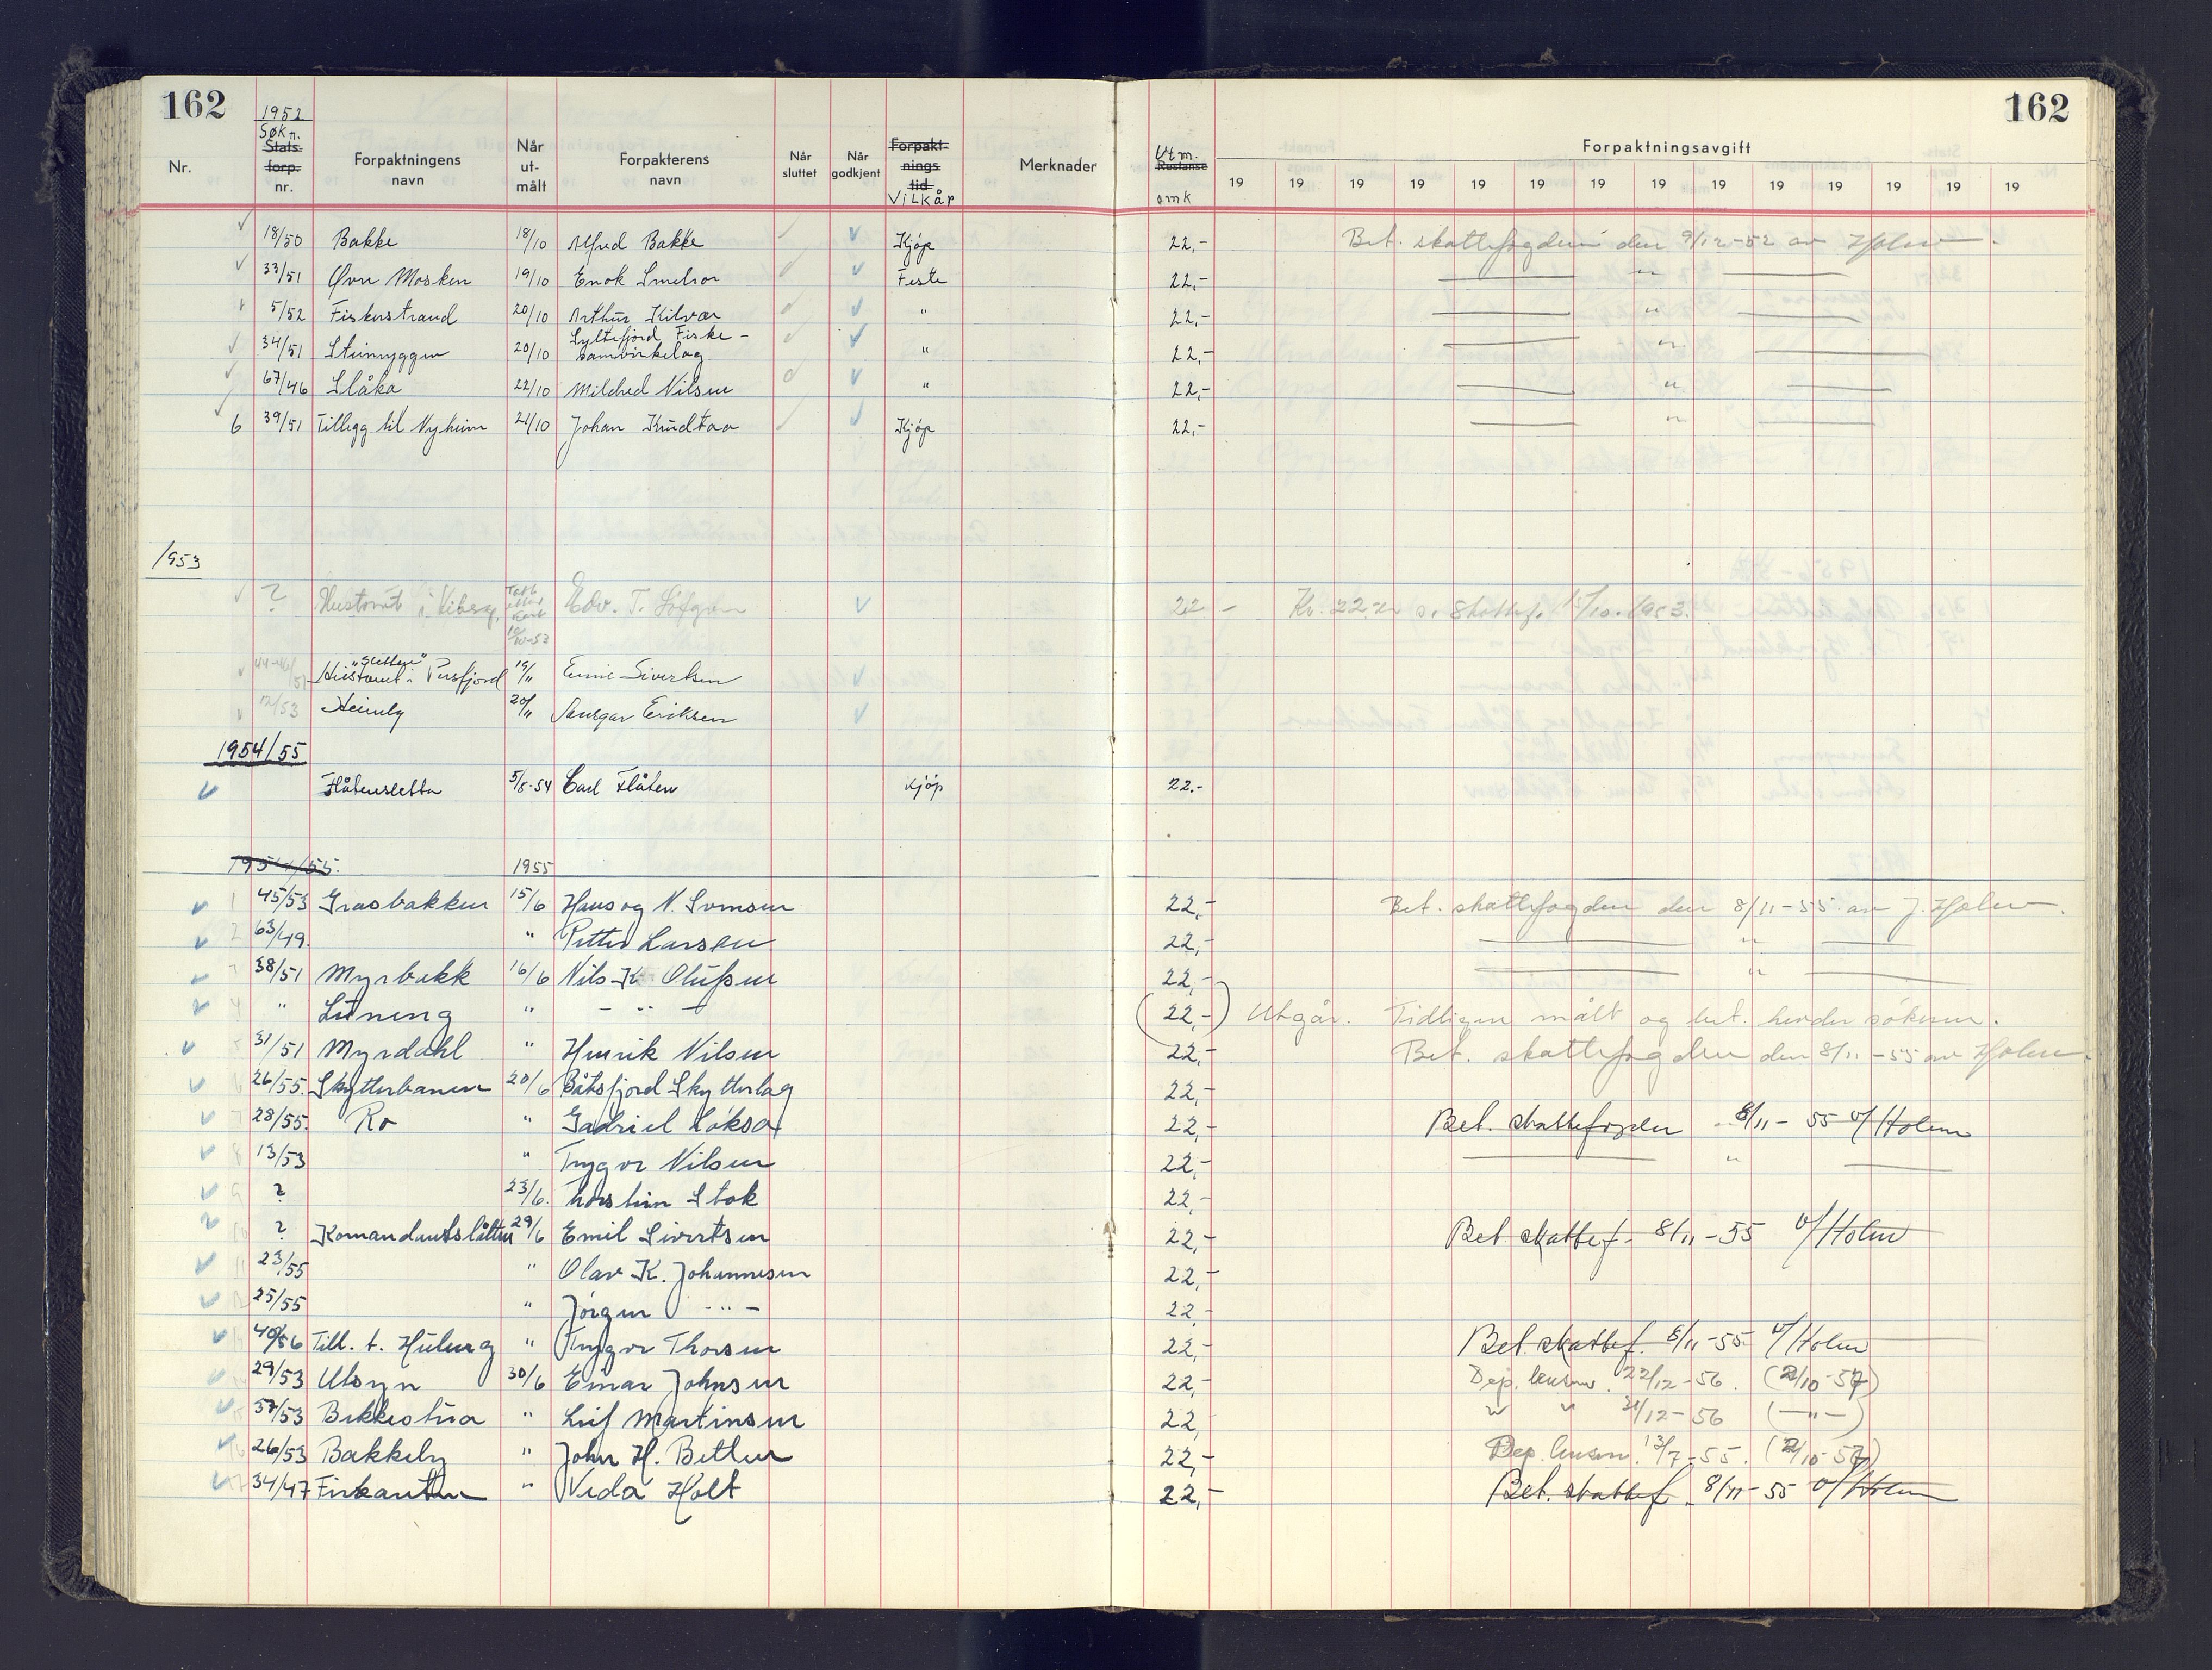 162
162
1952
Søkn.
Stats-
forp.
nr.
Nr.
Forpaktningens
navn
Når
ut-
målt
Forpakterens
navn
Når
sluttet
Når
godkjent
Forpakt-
nings
tid
Vilkår
Merknader
Utm.
Restanse
omk
Forpaktningsavgift
19 19 19 19 19 19 19 19 19 19 19 19 19 19
18/50 Bakke 18/10 Alfred Bakke Kjøp 22,- Bet. skattefogden den 9/12-52 av Holm
33/51 Øvre Mosken 19/10 Enok Smelror Feste 22,- "
5/52 Fiskerstrand 20/10 Arthur Kilvær " 22,- "
34/51 Steinryggen 20/10 Syltefjord Fiske-
samvirkelag " 22,- "
67/46 Slåka 22/10 Mildred Nilsen " 22,- "
6 39/51 Tillegg til Nyheim 21/10 Johan Knudtaa Kjøp 22,- "
1953
? Hustomt i Kiberg, 10/10-53 Edv. T. Løfgren 22 - Kr. 22.- s. Skattef. 15/10.1953.
"Sletten"
Hustomt i Persfjord 19/11 Emil Sivertsen
12/53 Heimly 20/11 Ansgar Eriksen
1954/55
Flåtensletta 5/8-54 Carl Flåten Kjøp 22.-
1954/55. 1955
1 45/53 Grasbakken 15/6 Hans og N. Svensen 22,- Bet. skattefogden den 8/11-55 av J. Holm.
2 63/49. " Petter Larsen 22,- "
38/51 Myrbakk 16/6 Nils K. Olufsen 22,- "
4 " Løning " - " - (22,-) Utgår. Tidligere målt og bet. herder søkeren.
5 31/51 Myrdahl " Henrik Nilsen 22,- Bet. skattefogden den 8/11-55 av Holm.
26/55. Skytterbanen 20/6 Båtsfjord Skytterlag 22,-
7 28/55. Ro " Gabriel Loksa 22,- Bet. skattefogden 8/11-55 v/Holm
8 13/53 " Trygve Nilsen 22,- "
9 ? 23/6. Thorstein Stok 22,-
10 ? Komandantslåtten 29/6 Emil Sivertsen 22,- Bet. skattef. 8/11-55 v/Holm
11 23/55 " Olav K. Johannesen 22,-
12 25/55 " Jørgen - " - 22,-
Till. t. " Trygve Thorsen 22,- Bet. skattef. 8/11-55 v/Holm
29/53 Utsyn 30/6 Einar Johnsen 22,- Dep. lensm. 22/12-56. (2/10-57)
37/53 Bekkestua " Leif Martinsen 22,- " " 31/12-56 (-"-)
16 26/53 Bakkely " John H. Betten 22,- Dep. lensm. 13/7-55. (2/10-57)
17 34/47 Firkanten " Vida Holt 22,- Bet. skattef. 8/11-55 v/Holm